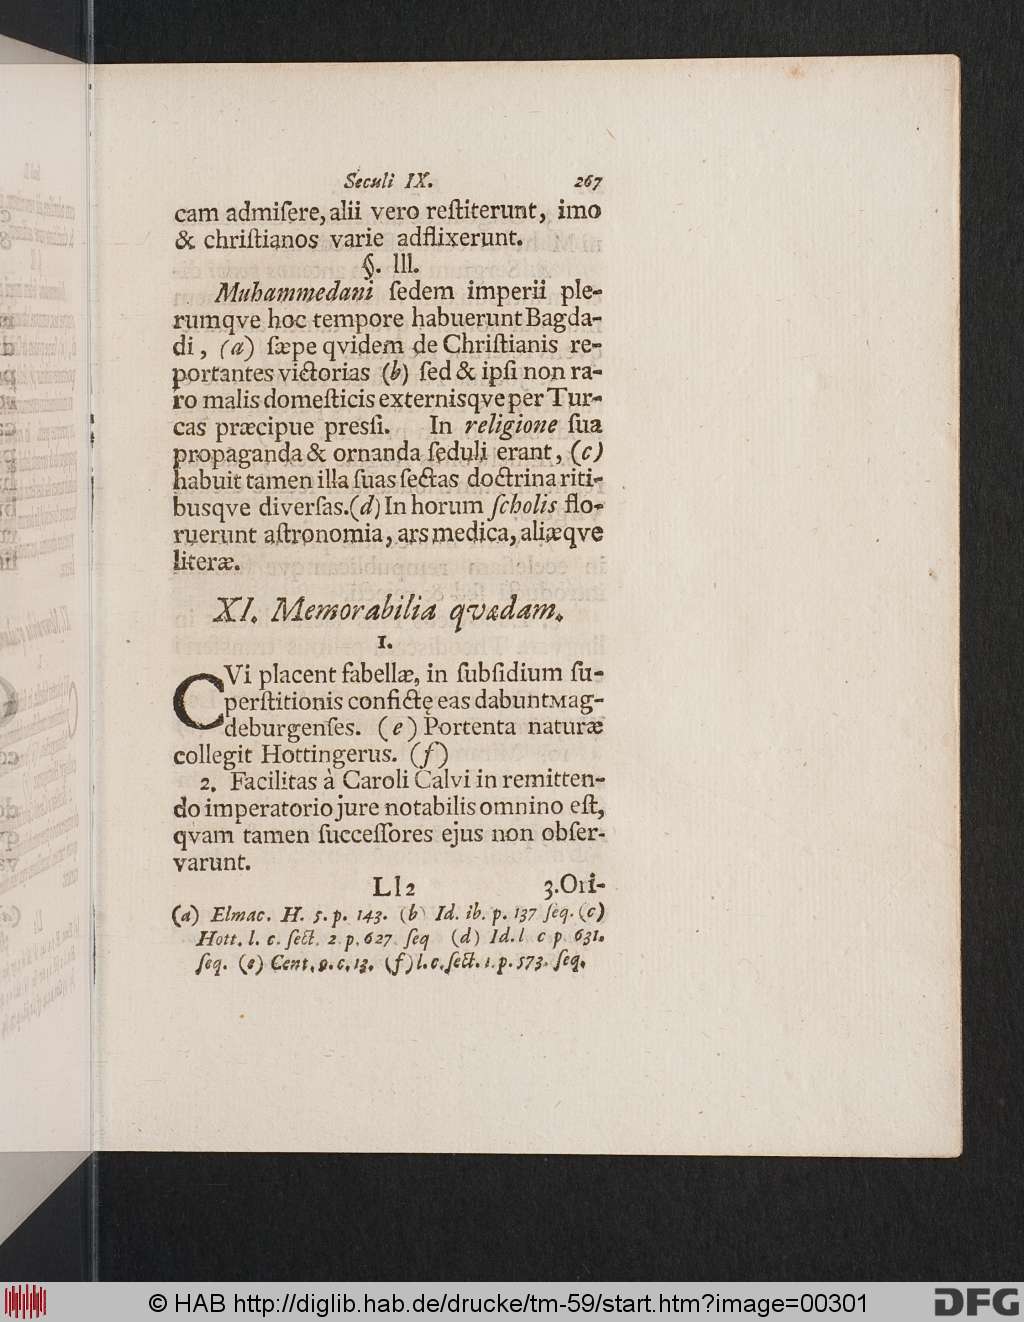 Seculi IX. 267
cam admiſere, alii vero reſtiterunt, imo
& chriſtianos varie adflixerunt.
§. III.
Muhammedani ſedem imperii ple-
rumqve hoc tempore habuerunt Bagda-
di, (a) ſæpe qvidem de Chriſtianis re-
portantes victorias (b) ſed & ipſi non ra-
ro malis domeſticis externisqve per Tur-
cas præcipue presſi. In religione ſua
propaganda & ornanda ſeduli erant, (c)
habuit tamen illa ſuas ſectas doctrina riti-
busqve diverſas. (d) In horum ſcholis flo-
ruerunt aſtronomia, ars medica, aliæqve
literæ.
XI. Memorabilia qvædam.
1.
CVi placent fabellæ, in ſubſidium ſu-
perſtitionis confictę eas dabunt Mag-
deburgenſes. (e) Portenta naturæ
collegit Hottingerus. (f)
2. Facilitas à Caroli Calvi in remitten-
do imperatorio jure notabilis omnino eſt,
qvam tamen ſucceſſores ejus non obſer-
varunt.
Ll2 3. Ori-
(a) Elmac. H. 5. p. 143. (b) Id. ib. p. 137 ſeq. (c)
Hott. l. c. ſect. 2 p. 627. ſeq (d) Id. l c p 631.
ſeq. (e) Cent. 9. c. 13. (f) l. c. ſect. 1. p. 573. ſeq.
© HAB http://diglib.hab.de/drucke/tm-59/start.htm?image=00301
DFG